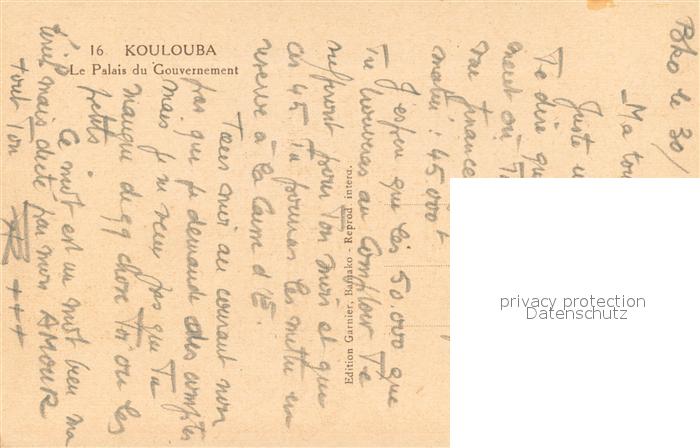 16. KOULOUBA
Le Palais du Gouvernement
Edition Garnier, Bamako - Reprod. interd.
Bko le 30/
Ma
Juste
Te dire que
ment où
France
matin : 45000 f
J'espère que les 50000 que
Tu trouveras au Comptoir Te
suffiront pour Ton mois et que
ces 45 Tu pourras les mettre en
réserve à la Caisse d'E.
Tiens moi au courant non
pas que je demande des comptes
mais je ne veux pas que Tu
manque de qq chose Toi ou les
petits.
Ce mot est un mot bien
mais dicté par mon AMOUR
tout Ton
+++
privacy protection
Datenschutz